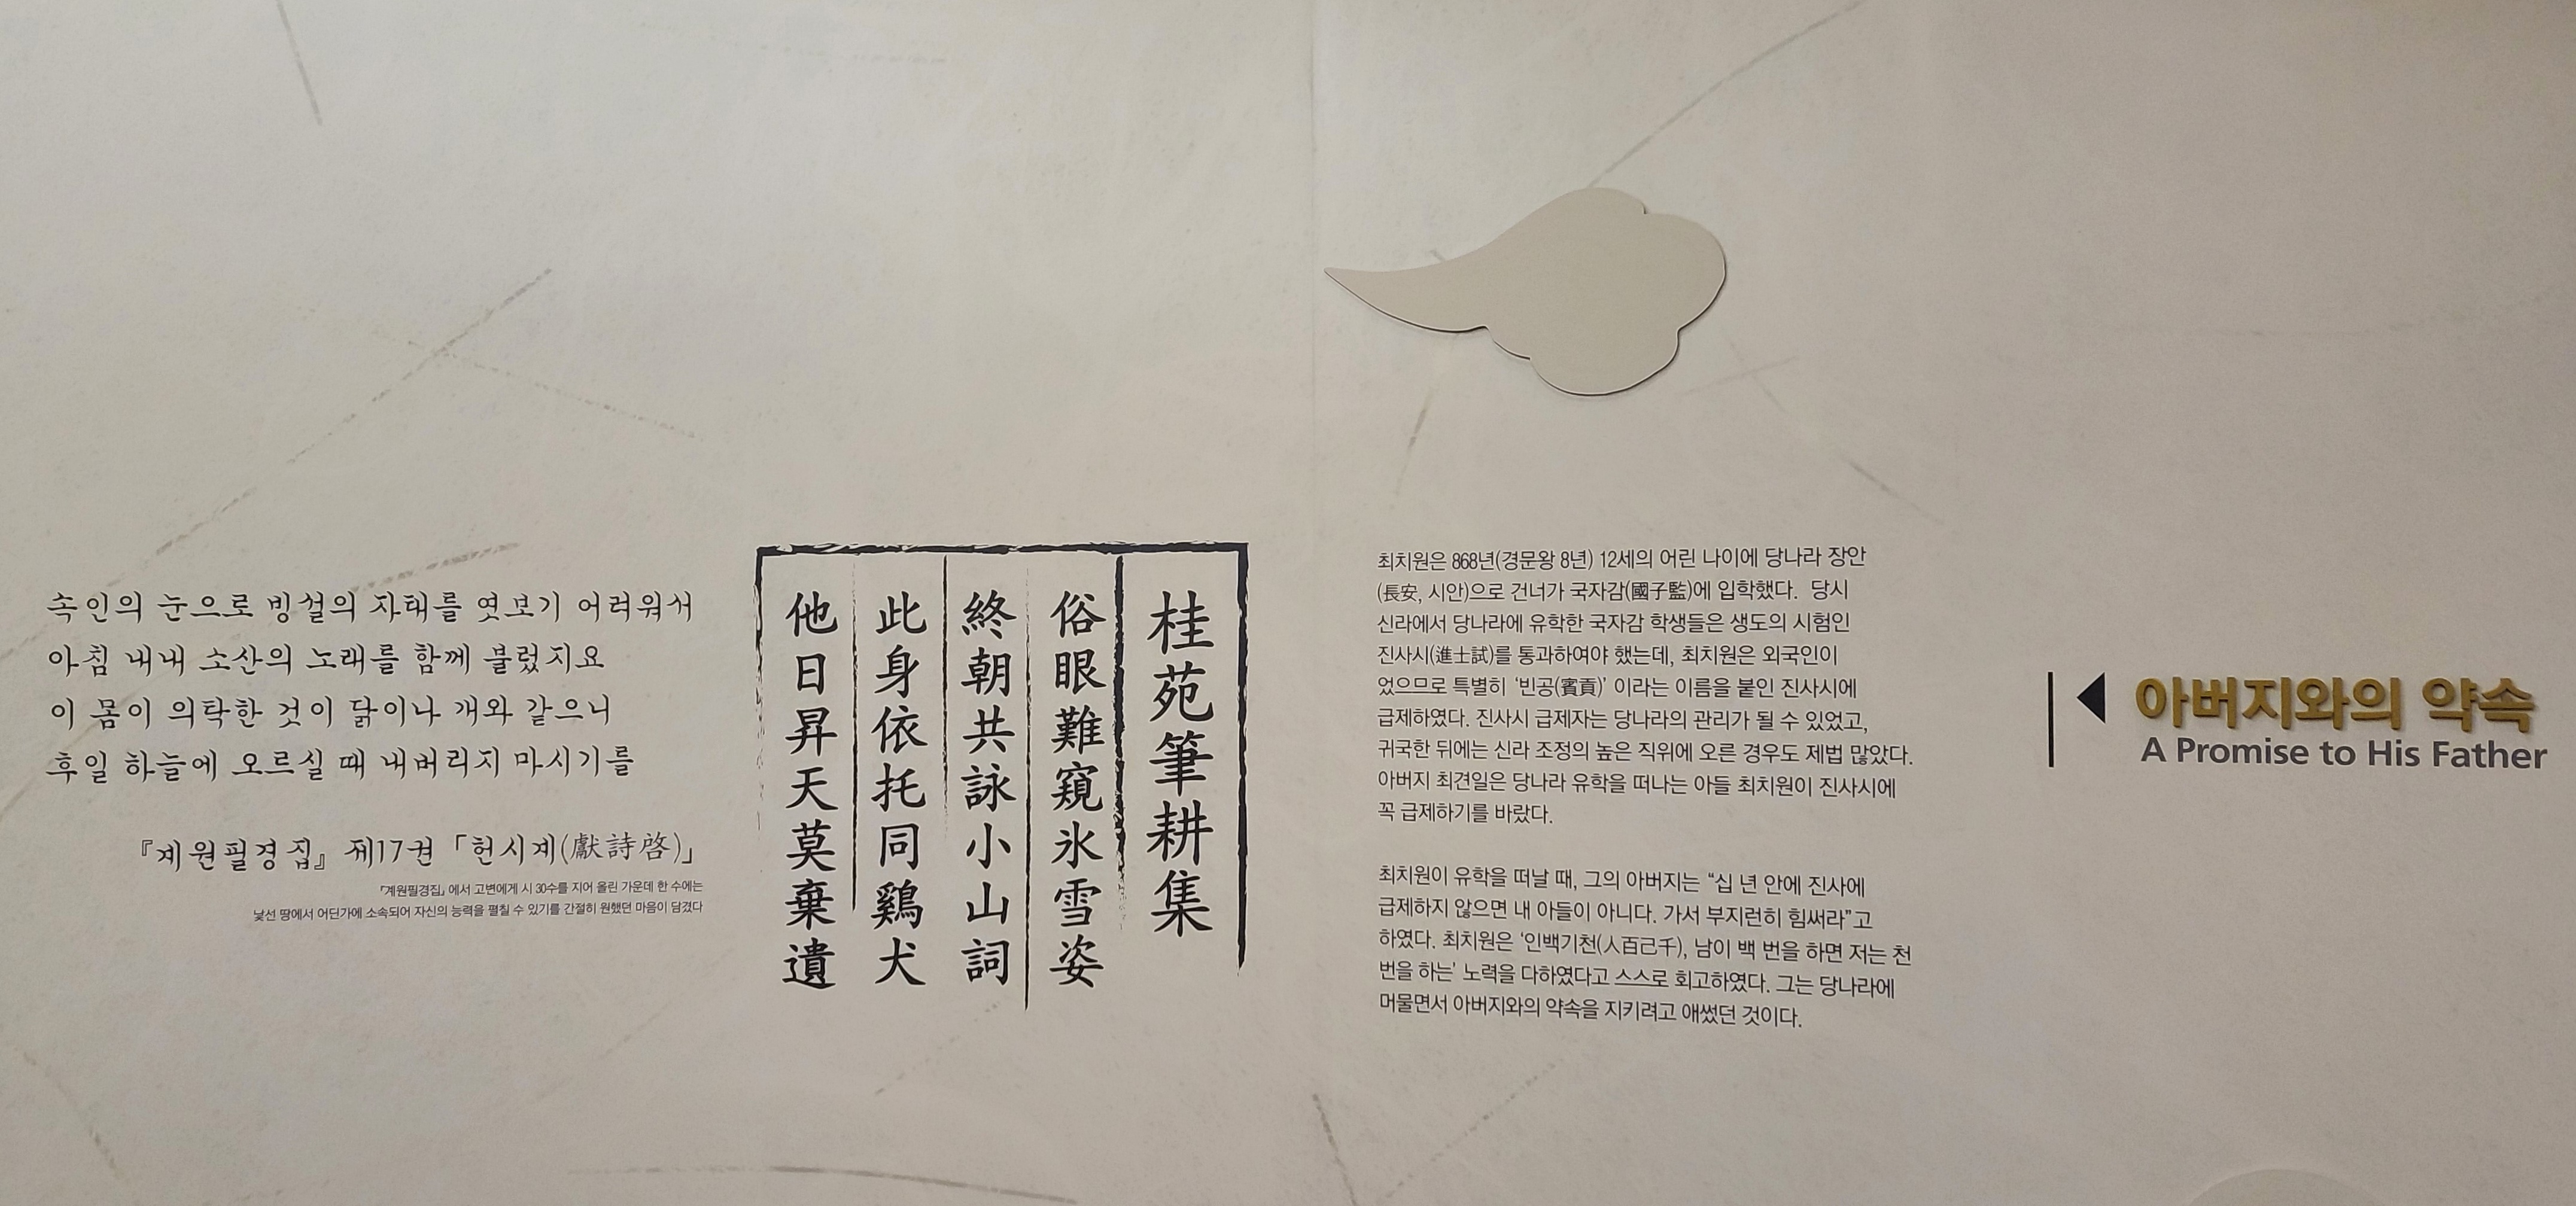 아버지와의 약속
A Promise to His Father
최치원은 868년(경문왕 8년) 12세의 어린 나이에 당나라 장안
(長安, 시안)으로 건너가 국자감(國子監)에 입학했다. 당시
신라에서 당나라에 유학한 국자감 학생들은 생도의 시험인
진사시(進士試)를 통과하여야 했는데, 최치원은 외국인이
었으므로 특별히 ‘빈공(賓貢)’ 이라는 이름을 붙인 진사시에
급제하였다. 진사시 급제자는 당나라의 관리가 될 수 있었고,
귀국한 뒤에는 신라 조정의 높은 직위에 오른 경우도 제법 많았다.
아버지 최견일은 당나라 유학을 떠나는 아들 최치원이 진사시에
꼭 급제하기를 바랐다.
최치원이 유학을 떠날 때, 그의 아버지는 “십 년 안에 진사에
급제하지 않으면 내 아들이 아니다. 가서 부지런히 힘써라”고
하였다. 최치원은 ‘인백기천(人百己千), 남이 백 번을 하면 저는 천
번을 하는’ 노력을 다하였다고 스스로 회고하였다. 그는 당나라에
머물면서 아버지와의 약속을 지키려고 애썼던 것이다.
桂苑筆耕集
俗眼難窺氷雪姿
終朝共詠小山詞
此身依托同鷄犬
他日昇天莫棄遺
속인의 눈으로 빙설의 자태를 엿보기 어려워서
아침 내내 소산의 노래를 함께 불렀지요
이 몸이 의탁한 것이 닭이나 개와 같으니
후일 하늘에 오르실 때 내버리지 마시기를
『계원필경집』 제17권 「헌시계(獻詩啓)」
『계원필경집』에서 고변에게 시 30수를 지어 올린 가운데 한 수에는
낯선 땅에서 어딘가에 소속되어 자신의 능력을 펼칠 수 있기를 간절히 원했던 마음이 담겼다